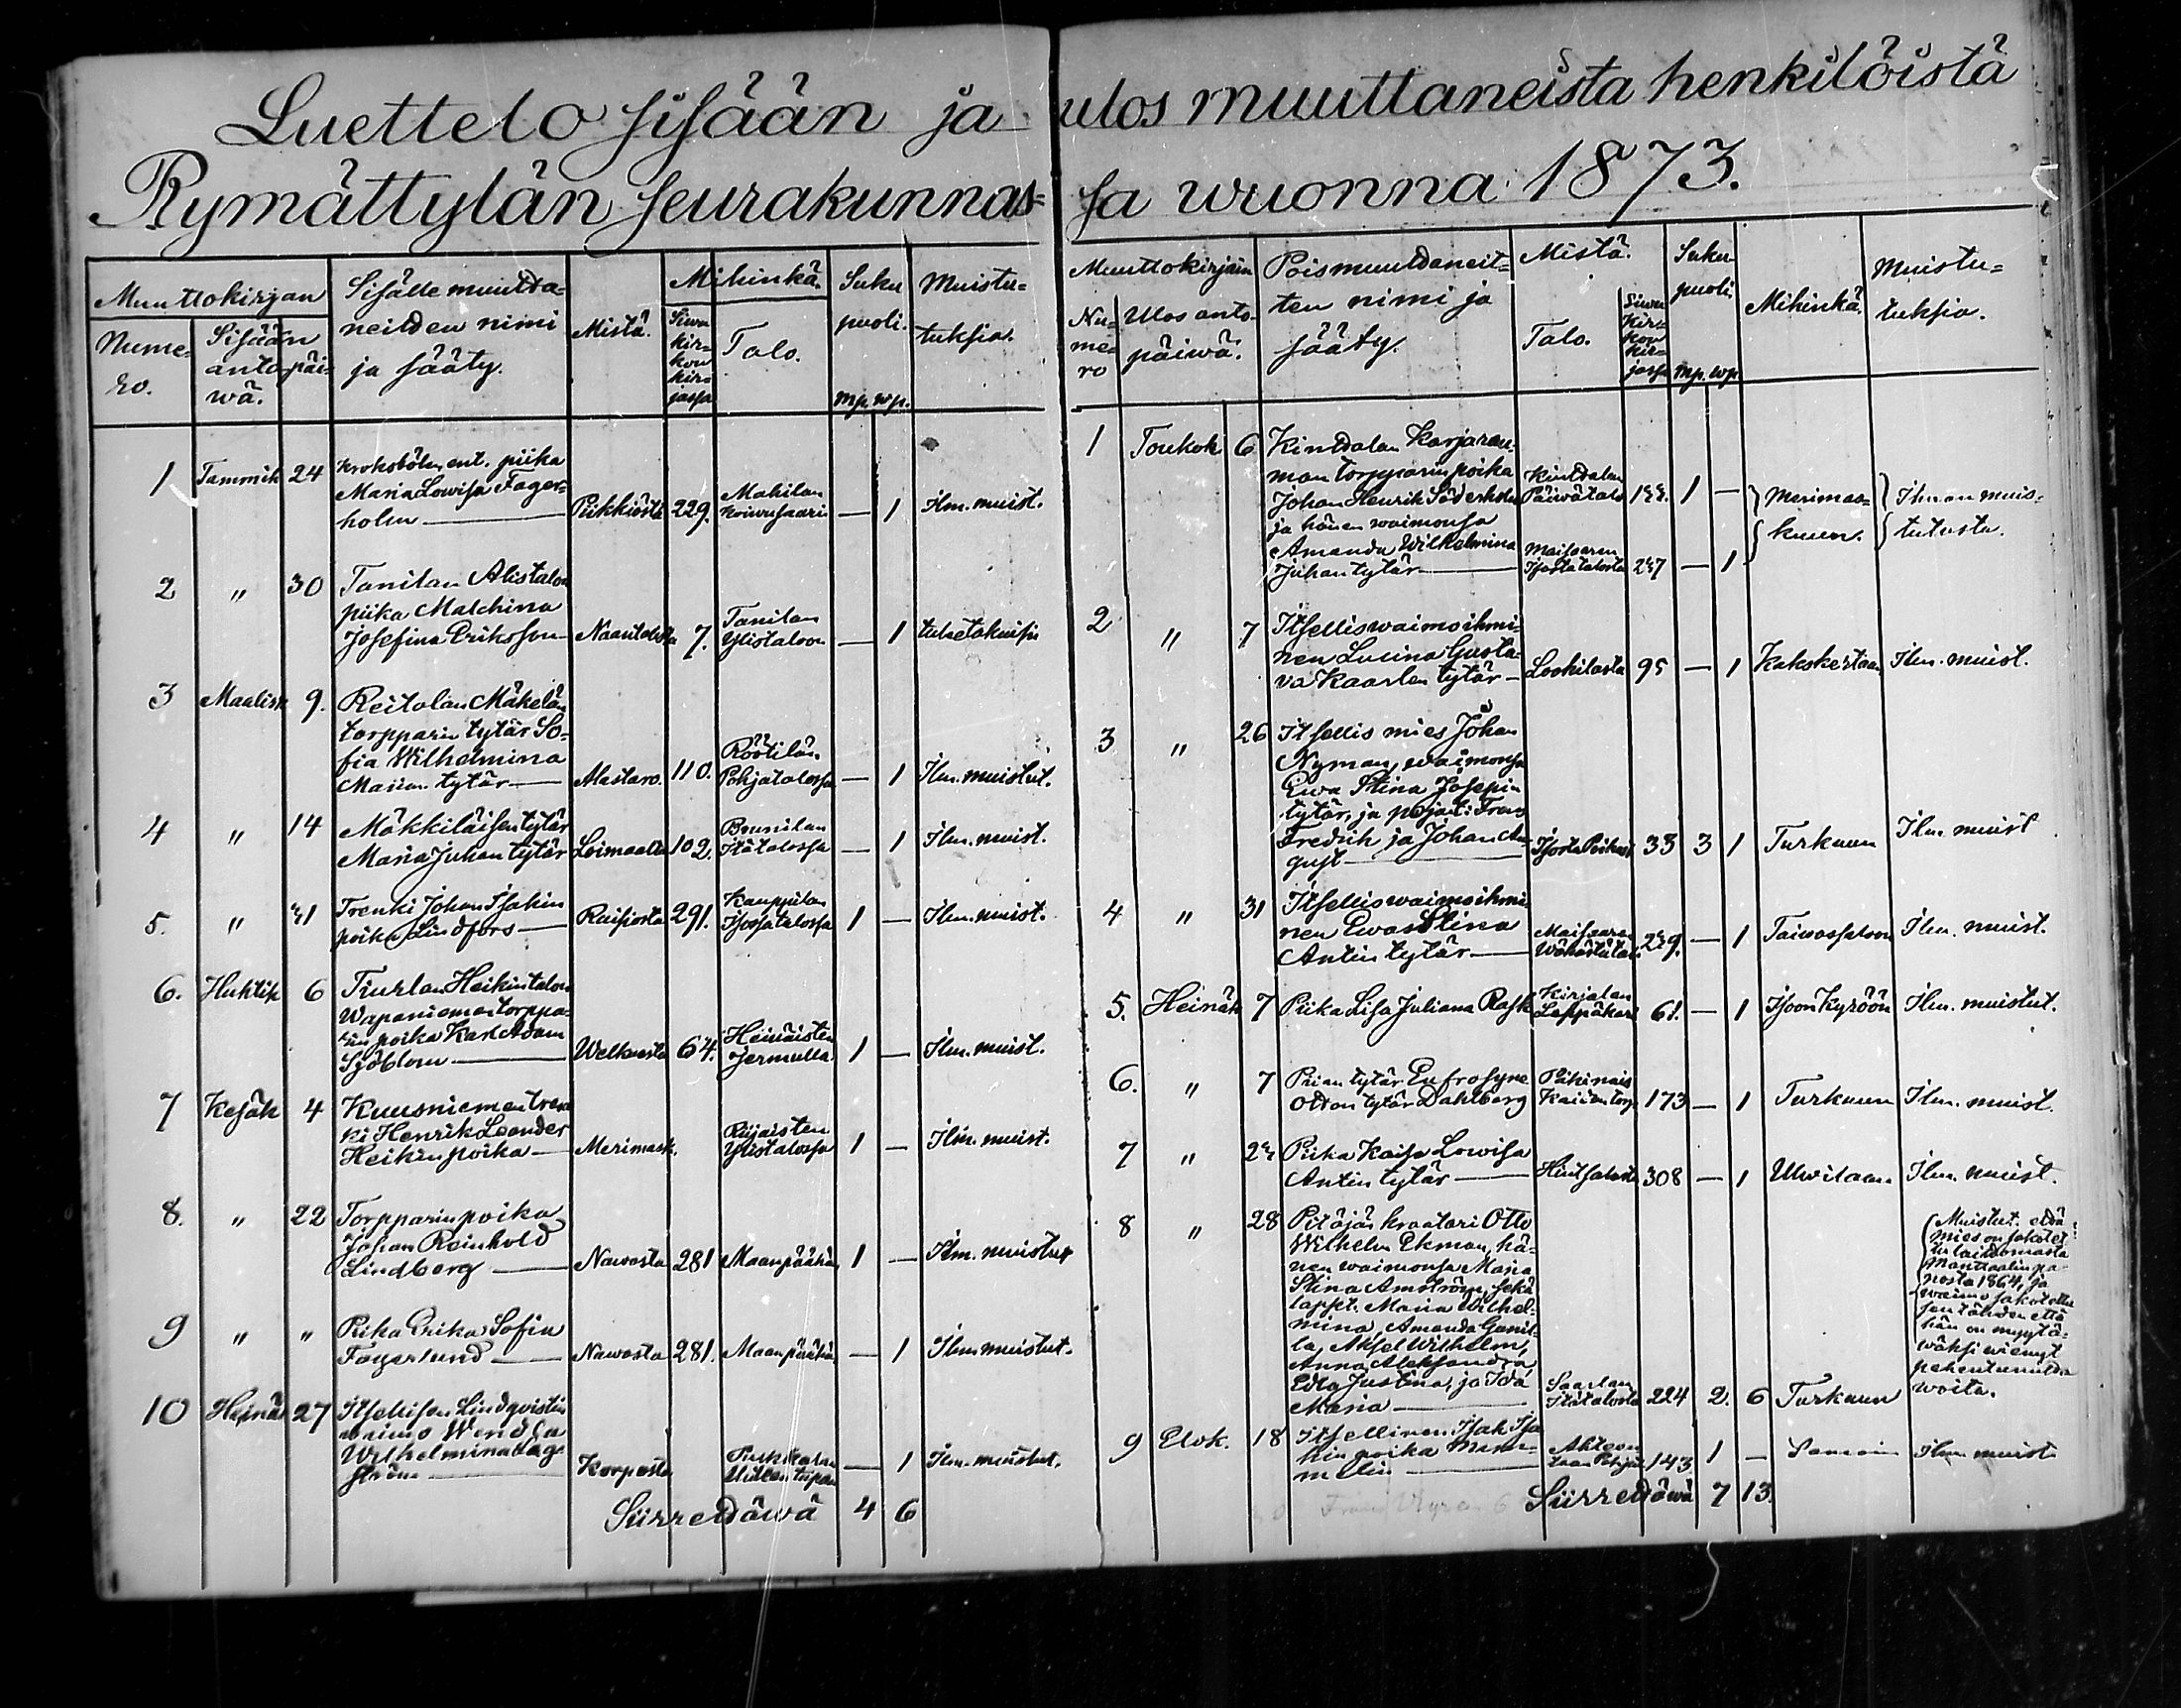 Luettelo sisään ja ulos muuttaneista henkilöistä
Rymättylän seurakunnas= sa wuonna 1873.
Muuttokirjan
Nume=
ro.
Sisään
anto päi=
wä.
Sisälle muutta=
neitden nimi
ja sääty.
Mistä.
Mihinkä.
Siwu
kir=
kon
kir=
jassa
Talo.
Suku
puoli.
mp. wp.
Muistu=
tuksia.
1 Tammik 24
ent. piika
Maria Lowisa Fager=
holm — Piikkiöstä 229. — 1 Ilm. muist.
2 " 30 Tanilan Alistalon
piika Malchina
Josefina Eriksson — Naantalista 7. Tanilan
Ylistaloon — 1
3 Maalisk 9. Reitolan Mäkelän
torpparin tytär So=
fia Wilhelmina
— Alastaro. 110. Röötilän
Pohjatalossa — 1 Ilm. muistut.
4 " 14 Mäkkiläisen tytär
Maria Juhan tytär Loimaalta 102.
Itätalossa — 1 Ilm. muist.
5. " 21 Trenki Johan Isakin
poika Lindfors — Raisiosta 291. Kauppilan
Isossatalossa 1 — Ilm. muist.
6. Huhtik 6 Tiurlan Heikintalon
Wapaniemen torppa=
rin poika Karl Adam
Sjöblom — Welkuasta 64. Heinäisten
Jermulla 1 — Ilm. muist.
7 Kesäk 4 Kuusniemen tren
ki Henrik Leander
Heikin poika — Merimask. Riijaisten
Ylistalossa 1 — Ilm. muist.
8. " 22 Torpparin poika
Johan Reinhold
Lindberg — Nawosta 281 Maanpäähän 1 — Ilm. muistut
9 " " Piika Erika Sofia
Fagerlund — Nawosta 281. Maanpäähän — 1 Ilm. muistut.
10 Heinäk 27 Itsellisen Lindqvistin
waimo Wendla
Wilhelmina Lag=
ström — Korposta — 1 Ilm. muistut.
Siirrettäwä 4 6
Muuttokirjain
Nu=
me=
ro
Ulos anto
päiwä.
Poismuuttaneit=
ten nimi ja
sääty.
Mistä.
Talo.
Siwu
Kir=
kon
kir=
jassa
Suku
puoli.
mp. wp.
Mihinkä.
Muistu=
tuksia.
1 Toukok 6 Kinttalan Karjarau=
man torpparin poika
Johan Henrik Söderholm
ja hänen waimonsa
Amanda Wilhelmina
Juhan tytär —
Kinttalan
Päiwätalo 122. 1 —
Maisaaren
Isostatalosta 227 — 1
Merimas=
kuun.
Ilman muis=
tutusta.
2 " 7 Itselliswaimoihmi=
nen Lucina Gusta=
va Kaarlen tytär — Lookilasta 95 — 1 Kakskertaan Ilm. muist.
3 " 26 Itsellis mies Johan
Nyman, waimonsa
Ewa Stina Josepin
tytär, ja pojat: Frans
Fredrih ja Johan Au
gust — 33 3 1 Turkuun Ilm. muist
4 " 31 Itselliswaimoihmi
nen Ewa Stina
Antin tytär — Maisaaren
229. — 1 Taiwassaloon Ilm. muist.
5. Heinäk 7 Piika Lisa Juliana Rask Kirjalan
61. — 1 Isoon Kyröön Ilm. muistut.
6. " 7 Piian tytär Eufrosyne
Otton tytär Dahlberg
173 — 1 Turkuun Ilm. muist.
7 " 22 Piika Kaisa Lowisa
Antin tytär — 308 — 1 Ulwilaan Ilm. muist.
8 " 28 Pitäjän kraatari Otto
Wilhelm Ekman, hä=
nen waimonsa Maria
Stina Amström, sekä
lapset. Maria Wilhel=
mina, Amanda Gunil=
la, Aksel Wilhelm,
Anna Aleksandra,
Edla Justina, ja Ida
Maria —
Saarlan
Itätalosta 224 2. 6 Turkuun
Muistut. että
mies on sakotet=
tu
1864, ja
waimo sakotettu
sen tähden että
hän on myytä=
wäksi wienyt
woita.
9 Elok. 18 Itsellinen Isak Isa
kin poika
143 1 — Ilm. muist
Siirrettäwä 7 13.